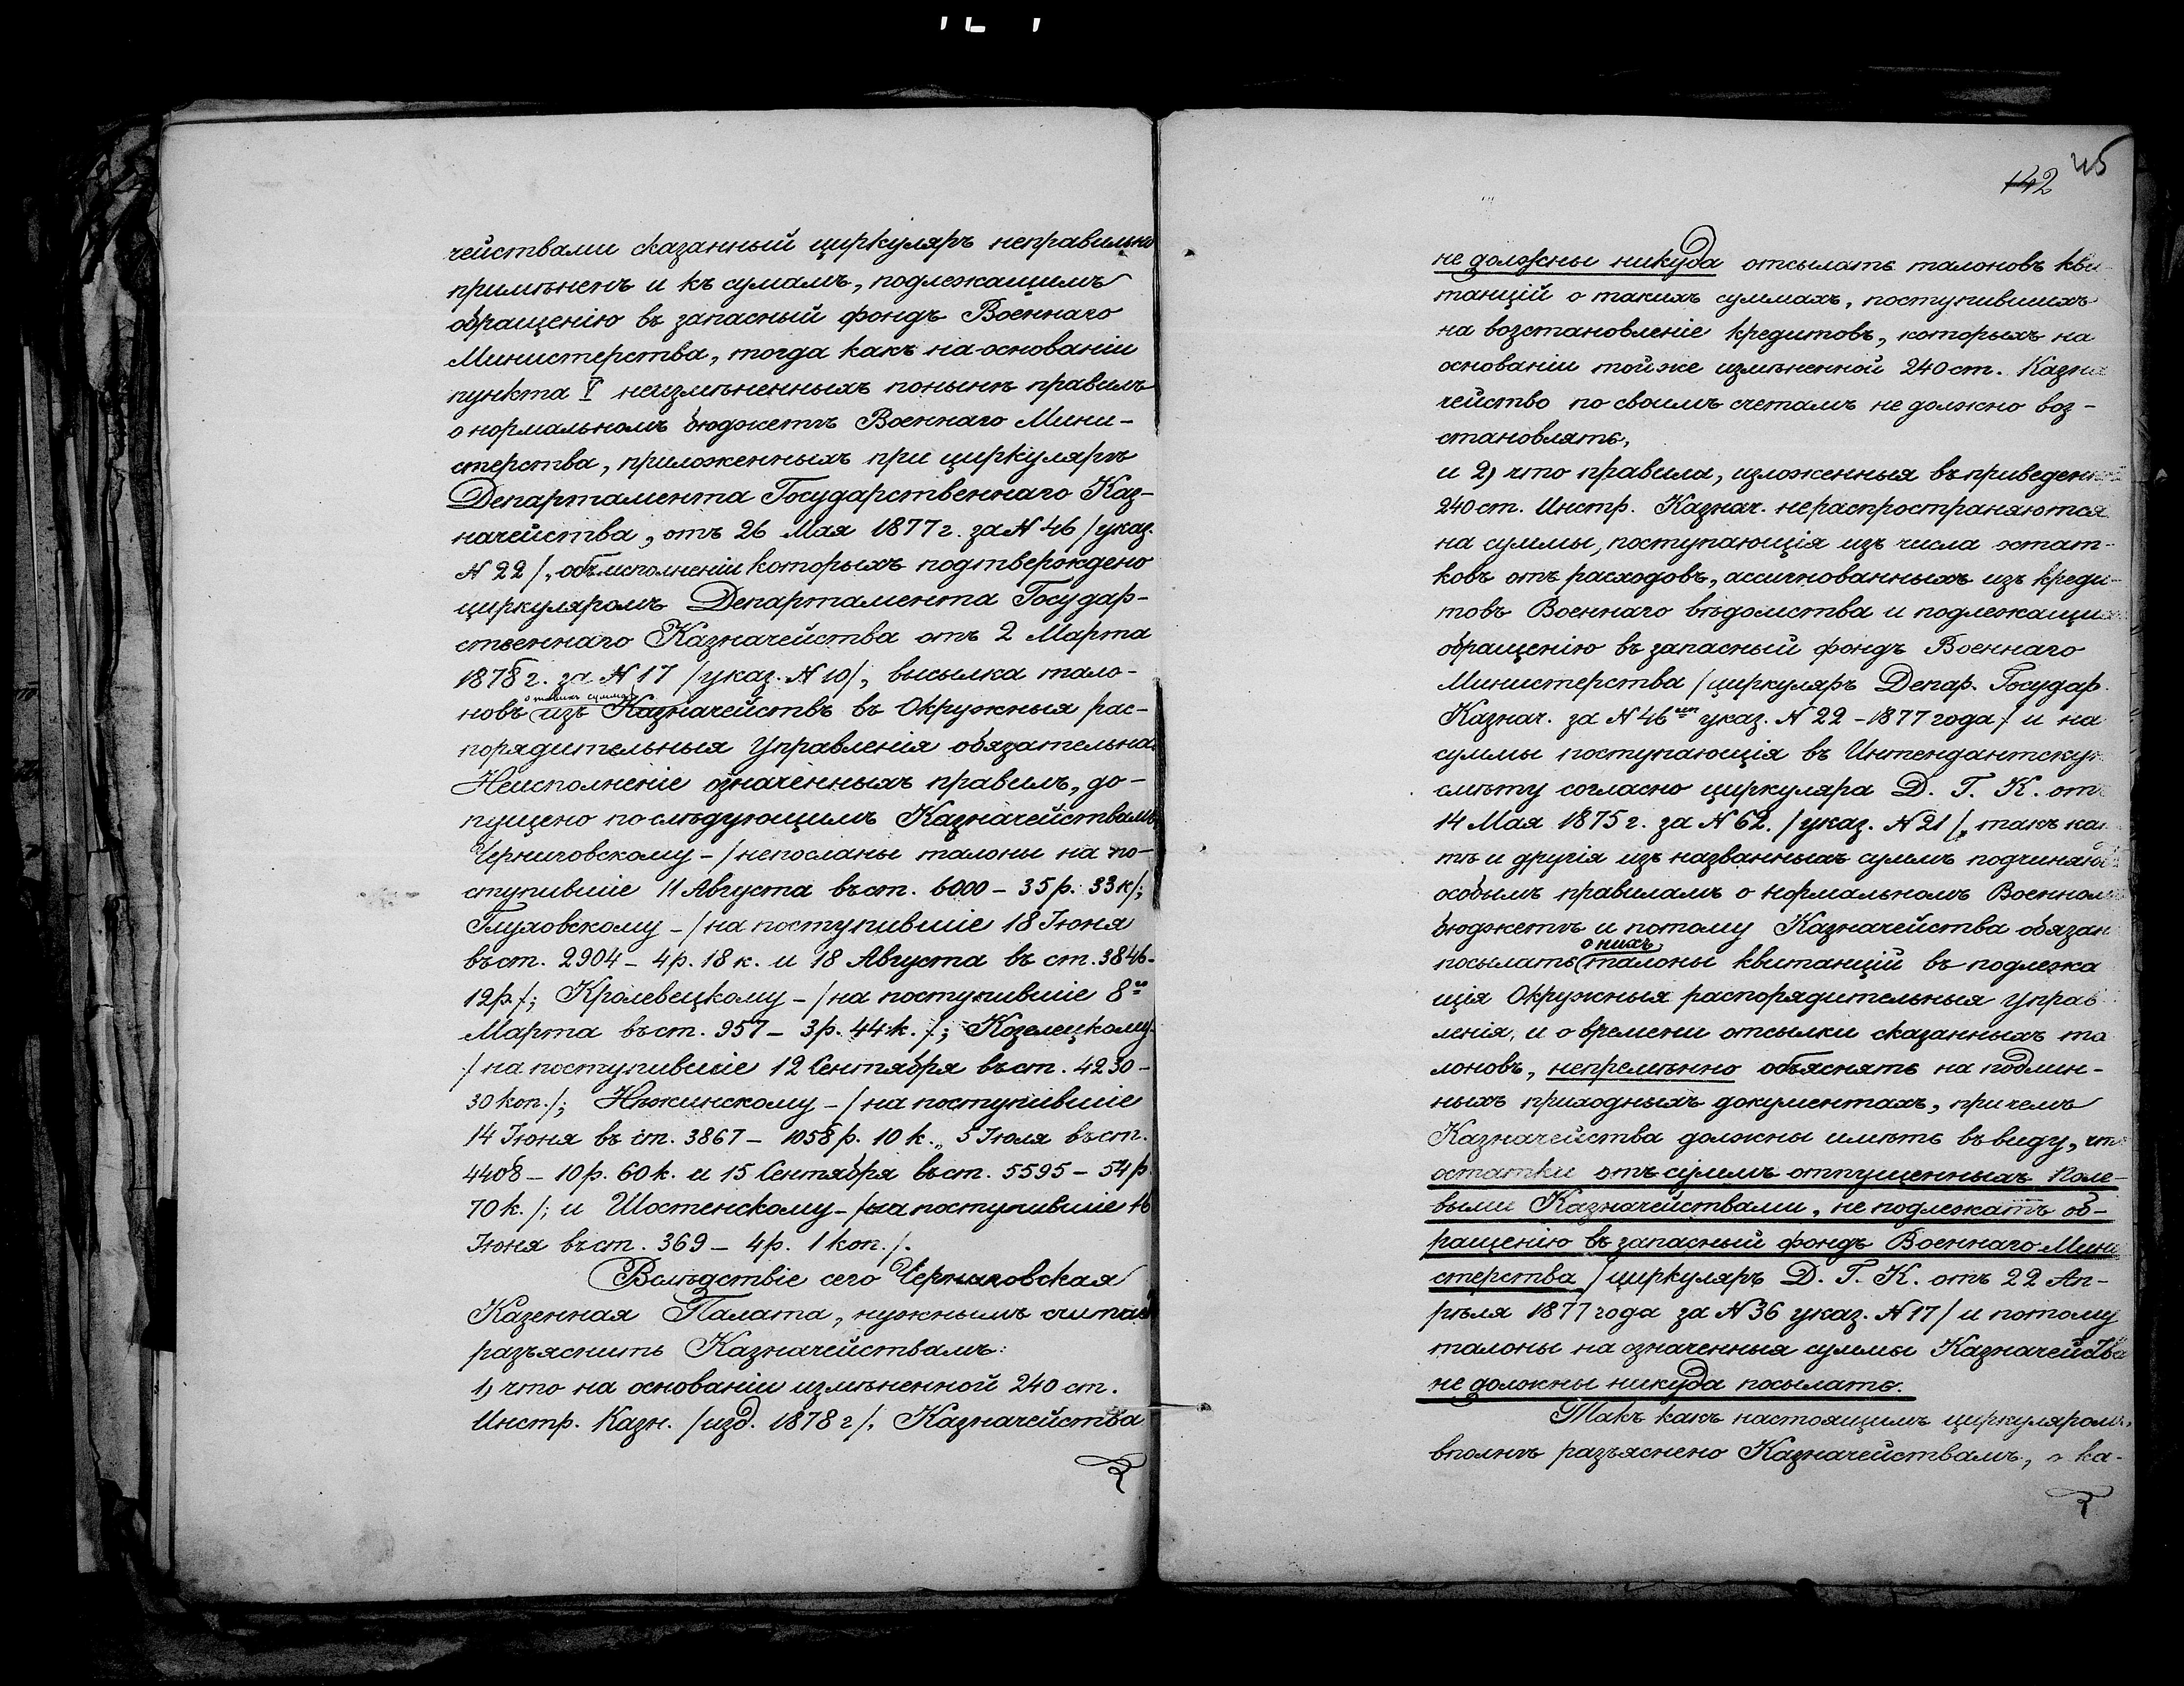 чействами сказанный циркуляръ неправильно
примѣненъ и къ сумамъ, подлежащимъ
обращенію въ запасный фондъ Военнаго
Министерства, тогда какъ на основаніи
пункта V неизмѣненныхъ понынѣ правилъ
о нормальномъ бюджетѣ Военнаго Мини-
стерства, приложенныхъ при циркулярѣ
Департамента Государственнаго Каз-
начейства, отъ 26 Мая 1877 г. за N 46 /указ.
N 22/, объ исполненіи которыхъ подтверждено
циркуляромъ Департамента Государ-
ственнаго Казначейства отъ 2 Марта
1878 г. за N 17 /указ. N 10/, высылка тало-
о такихъ суммахъ
новъ изъ Казначействъ въ Окружныя рас-
порядительныя Управленія обязательна.
Неисполненіе означенныхъ правилъ, до-
пущено по слѣдующимъ Казначействамъ
Черниговскому – /непосланы талоны на по-
ступившіе 11 Августа въ ст. 6000 – 35 р. 33 к/;
Глуховскому – /на поступившіе 18 Іюня
въ ст. 2904 – 4 р. 18 к. и 18 Августа въ ст. 3846 –
12 р./; Кролевецкому – /на поступившіе 8го
Марта въ ст. 957 – 3 р. 44 к./; Козелецкому –
/на поступившіе 12 Сентября въ ст. 4230 –
30 коп./; Нѣжинскому – /на поступившіе
14 Іюня въ ст. 3867 – 1058 р. 10 к., 5 Іюля въ ст.
4408 – 10 р. 60 к. и 15 Сентября въ ст. 5595 – 54 р.
70 к./; и Шостенскому – /на поступившіе 16
Іюня въ ст. 369 – 4 р. 1 коп./.
Вслѣдствіе сего Черниговская
Казенная Палата, нужнымъ считаетъ
разъяснить Казначействамъ:
1) что на основаніи измѣненной 240 ст.
Инстр. Казн. /изд. 1878 г/, Казначейства
142 45
не должны никуда отсылать талоновъ кви-
танцій о такихъ суммахъ, поступившихъ
на возстановленіе кредитовъ, которыхъ на
основаніи той же измѣненной 240 ст. Казна
чейство по своимъ счетамъ не должно воз-
становлять,
и 2) что правила, изложенныя въ приведенной
240 ст. Инстр. Казнач. нераспространяются
на суммы, поступающія изъ числа остат-
ковъ отъ расходовъ, ассигнованныхъ изъ креди-
товъ Военнаго вѣдомства и подлежащихъ
обращенію въ запасный фондъ Военнаго
Министерства /циркуляръ Депар. Государ.
Казнач. за N 46 указ. N 22 – 1877 года/ и на
суммы поступающія въ Интендантскую
смѣту согласно циркуляра Д. Г. К. отъ
14 Мая 1875 г. за N 62. /указ. N 21/, такъ как
тѣ и другія изъ названныхъ суммъ подчиняют
особымъ правиламъ о нормальномъ Военномъ
бюджетѣ и потому Казначейства обязан
о нихъ
посылать талоны квитанцій въ подлежа
щія Окружныя распорядительныя Управ
ленія, и о времени отсылки сказанныхъ та
лоновъ, непремѣнно объяснять на подлин-
ныхъ приходныхъ документахъ, причемъ
Казначейства должны имѣть въ виду, что
остатки отъ суммъ отпущенныхъ Поле-
выми Казначействами, не подлежатъ об-
ращенію въ запасный фондъ Военнаго Мини
стерства /циркуляръ Д. Г. К. отъ 22 Ап-
рѣля 1877 года за N 36 указ. N 17/ и потому
талоны на означенныя суммы Казначейства
не должны никуда посылать.
Такъ какъ настоящимъ циркуляромъ,
вполнѣ разъяснено Казначействамъ, о ка-